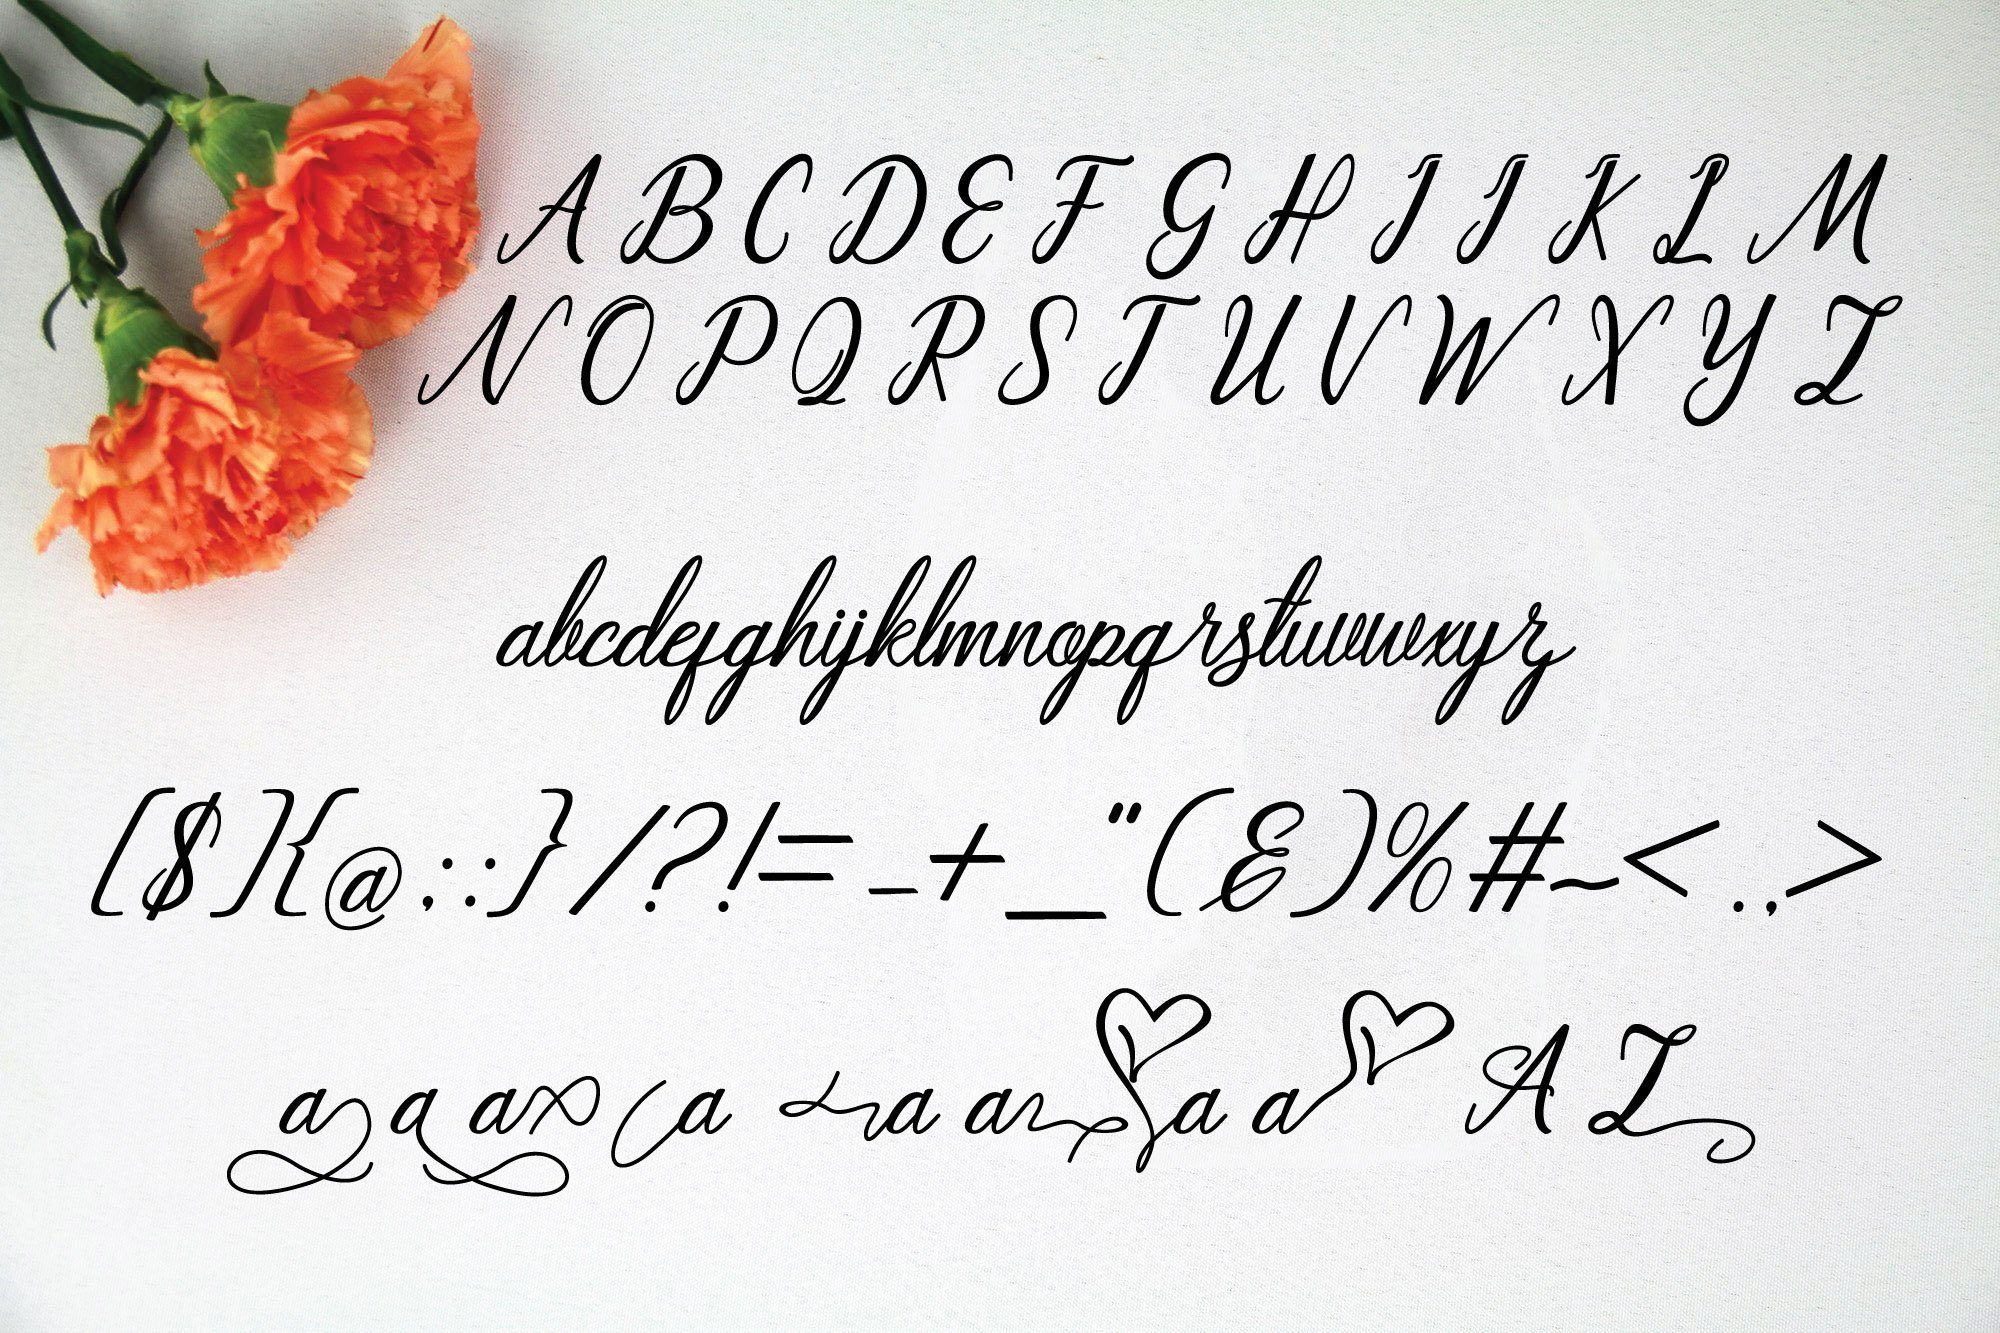 A B C D E F G H I J K L M
N O P Q R S T U V W X Y Z
abcdefghijklmnopqrstuvwxyz
[$]{@;:}/?!=-+_"(&)%#~<.,>
a a a a a a a a A Z